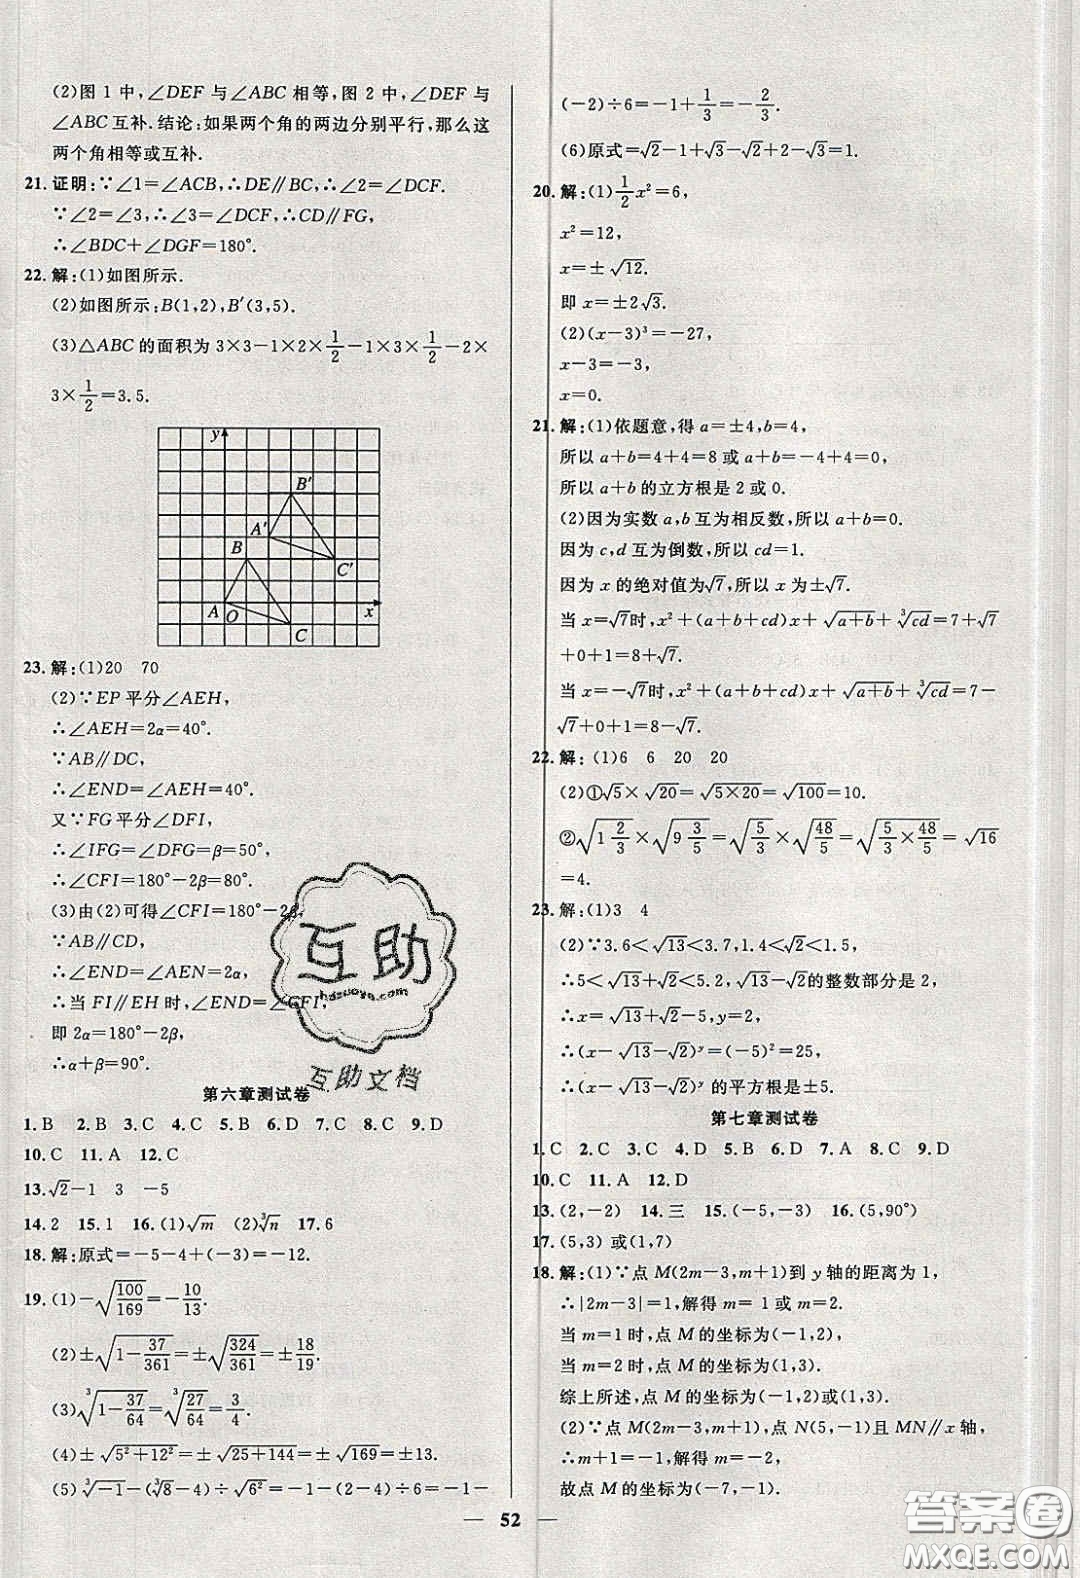 (2)图 1 中,∠DEF 与∠ABC 相等,图 2 中,∠DEF 与
∠ABC 互补.结论:如果两个角的两边分别平行,那么这
两个角相等或互补.
21. 证明:∵∠1=∠ACB,∴DE∥BC,∴∠2=∠DCF.
∵∠2=∠3,∴∠3=∠DCF,∴CD∥FG,
∴∠BDC+∠DGF=180°.
22. 解:(1)如图所示.
(2)如图所示:B(1,2),B′(3,5).
(3)△ABC 的面积为 3×3-1×2×1/2-1×3×1/2-2×
3×1/2=3.5.
y
B′
A′
B
C′
A
O
x
C
23. 解:(1)20 70
(2)∵EP 平分∠AEH,
∴∠AEH=2α=40°.
∵AB∥DC,
∴∠END=∠AEH=40°.
又∵FG平分∠DFI,
∴∠IFG=∠DFG=β=50°,
∴∠CFI=180°-2β=80°.
(3)由(2)可得∠CFI=180°-2β,
∵AB∥CD,
∴∠END=∠AEN=2α,
∴当 FI∥EH 时,∠END=∠CFI,
即 2α=180°-2β,
∴α+β=90°.
第六章测试卷
1. B 2. B 3. C 4. C 5. B 6. D 7. C 8. C 9. D
10. C 11. A 12. C
13. √2-1 3 -5
14. 2 15. 1 16. (1)√m (2)∛n 17. 6
18. 解:原式=-5-4+(-3)=-12.
19. (1)-√(100/169)=-10/13.
(2)±√(1-37/361)=±√(324/361)=±18/19.
(3)∛(1-37/64)=∛(27/64)=3/4.
(4)±√(5²+12²)=±√(25+144)=±√169=±13.
(5)∛(-1)-(∛8-4)÷√(6²)=-1-(2-4)÷6=-1-
(-2)÷6=-1+1/3=-2/3.
(6)原式=√2-1+√3-√2+2-√3=1.
20. 解:(1)1/2x²=6,
x²=12,
x=±√12.
即 x=±2√3.
(2)(x-3)³=-27,
x-3=-3,
x=0.
21. 解:(1)依题意,得 a=±4,b=4,
所以 a+b=4+4=8 或 a+b=-4+4=0,
所以 a+b 的立方根是 2 或 0.
(2)因为实数 a,b 互为相反数,所以 a+b=0.
因为 c,d 互为倒数,所以 cd=1.
因为 x 的绝对值为√7,所以 x 为±√7.
当 x=√7时,x²+(a+b+cd)x+√(a+b)+∛(cd)=7+√7
+0+1=8+√7.
当 x=-√7时,x²+(a+b+cd)x+√(a+b)+∛(cd)=7-
√7+0+1=8-√7.
22. 解:(1)6 6 20 20
(2)①√5×√20=√(5×20)=√100=10.
②√(1 2/3)×√(9 3/5)=√(5/3)×√(48/5)=√(5/3×48/5)=√16
=4.
23. 解:(1)3 4
(2)∵3.6<√13<3.7,1.4<√2<1.5,
∴5<√13+√2<5.2,√13-√2的整数部分是 2,
∴x=√13+√2-5,y=2,
∴(x-√13-√2)ʸ=(-5)²=25,
∴(x-√13-√2)ʸ 的平方根是±5.
第七章测试卷
1. C 2. C 3. C 4. D 5. D 6. B 7. A 8. C 9. D
10. C 11. A 12. D
13. (2,-2) 14. 三 15. (-5,-3) 16. (5,90°)
17. (5,3) 或(1,7)
18. 解:(1)∵点 M(2m-3,m+1)到 y 轴的距离为 1,
∴|2m-3|=1,解得 m= 1 或 m=2.
当 m=1 时,点 M 的坐标为(-1,2),
当 m=2 时,点 M 的坐标为(1,3).
综上所述,点 M 的坐标为(-1,2)或(1,3).
(2)∵点 M(2m-3,m+1),点 N(5,-1)且 MN∥x 轴,
∴m+1=-1,解得 m=-2,
故点 M 的坐标为(-7,-1).
52
互助
hdzuoye.com
互助文档
答案圈
MXQE.COM